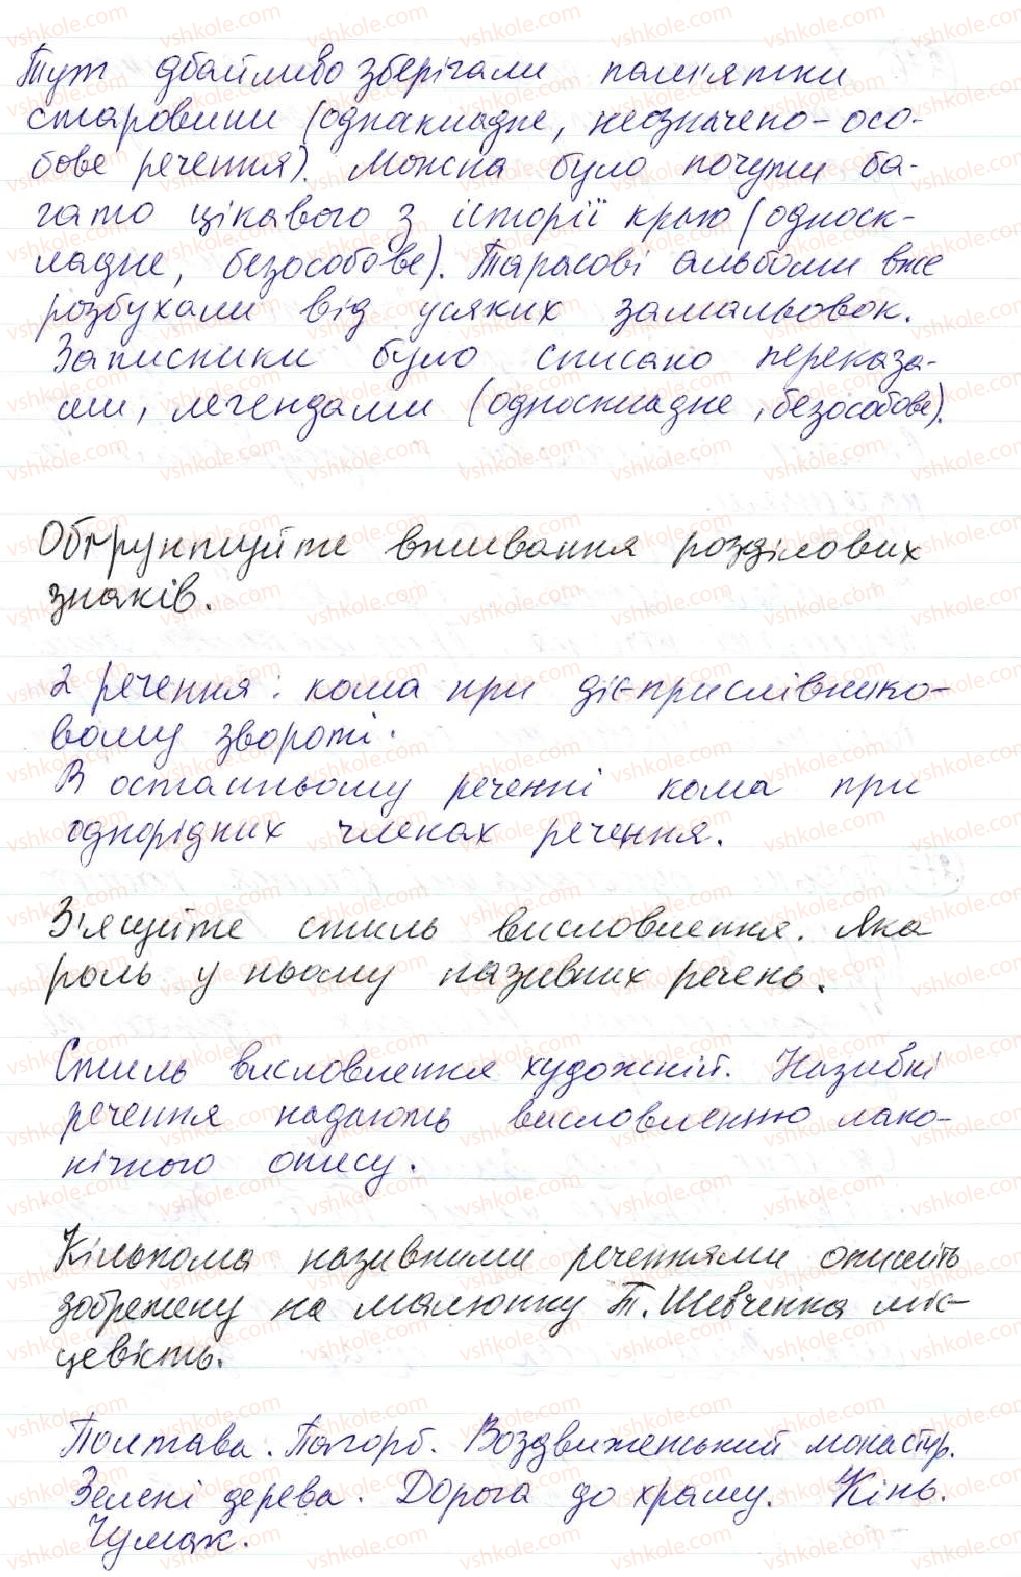 Тут дбайливо зберігали пам'ятки
старовини (однакладне, неозначено-осо-
бове речення). Можна було почути ба-
гато цікавого з історії краю (односк-
ладне, безособове). Тарасові альбоми вже
розбухали від усяких замальовок.
Записники було списано переказа-
ми, легендами (односкладне, безособове).
Обґрунтуйте вживання розділових
знаків.
2 речення: кома при дієприслівнико-
вому звороті.
В останньому реченні кома при
однорідних членах речення.
З'ясуйте стиль висловлення. Яка
роль у ньому називних речень.
Стиль висловлення художній. Називні
речення надають висловленню лако-
нічного опису.
Кількома називними реченнями опишіть
зображену на малюнку Т. Шевченка міс-
цевість.
Полтава. Пагорб. Воздвиженський монастир.
Зелені дерева. Дорога до храму. Кінь.
Чумак.